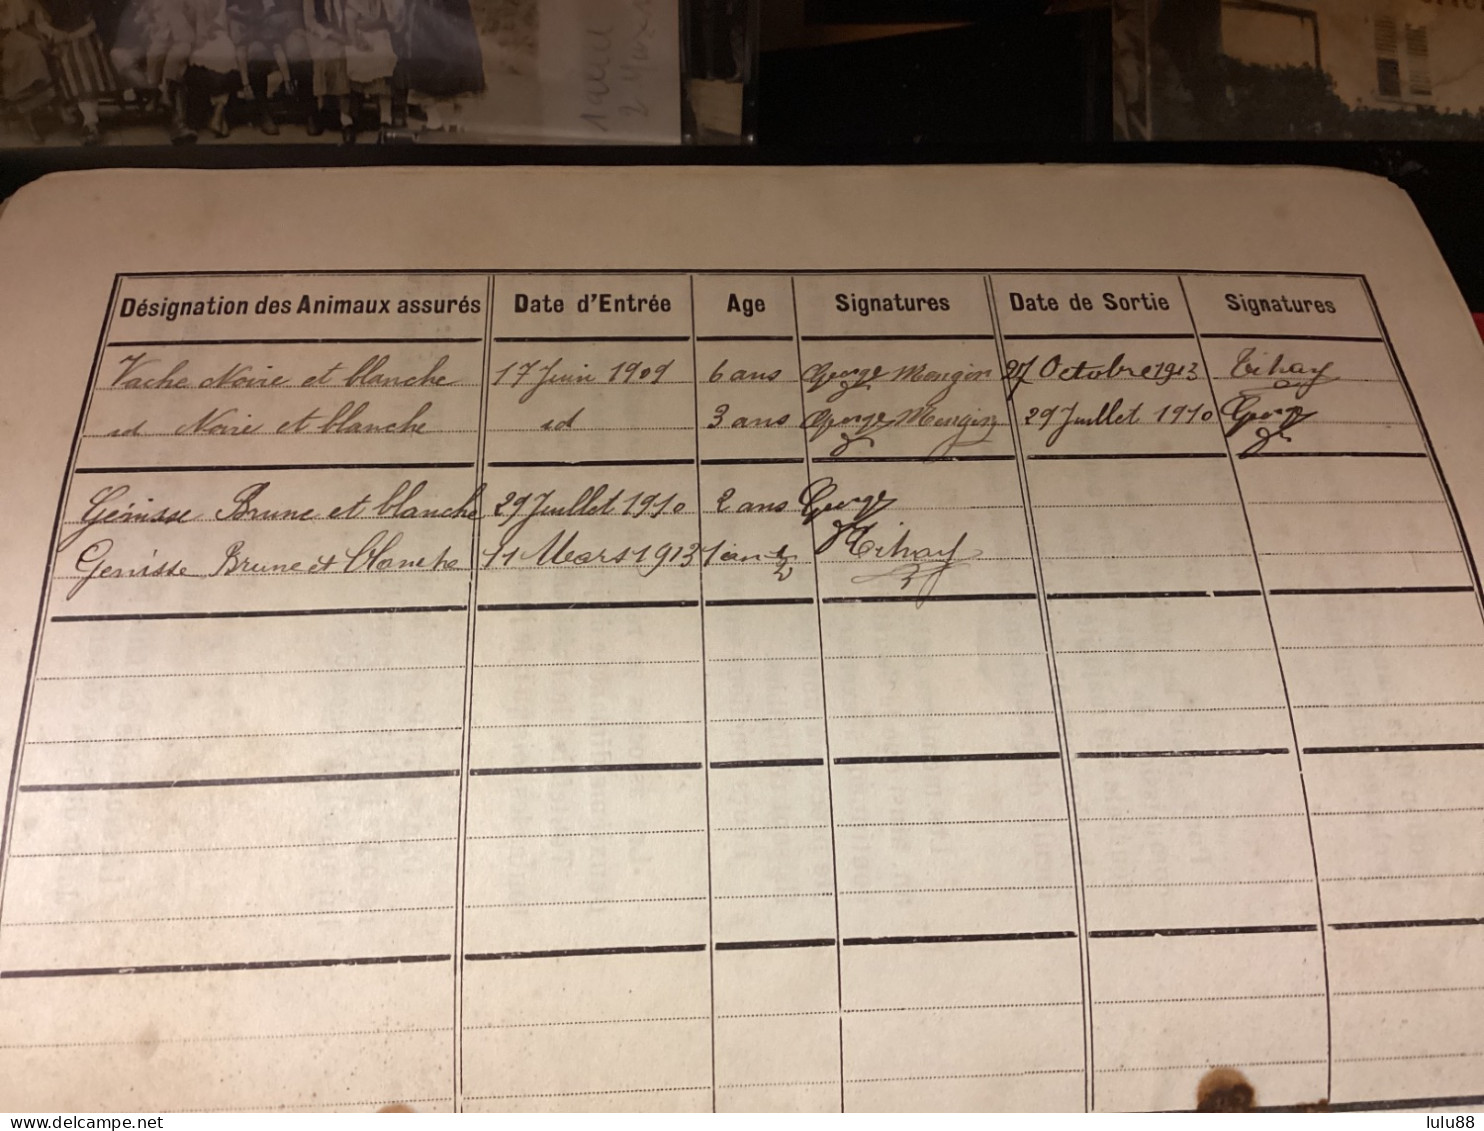 1 avril
Désignation des Animaux assurés Date d'Entrée Age Signatures Date de Sortie Signatures
Vache Noire et blanche 17 Juin 1909 6 ans George Mengin 27 Octobre 1913 Tihay
id Noire et blanche id 3 ans George Mengin 29 Juillet 1910 George
Génisse Brune et blanche 29 Juillet 1910 2 ans George
Genisse Brune et blanche 11 Mars 1913 1 an ½ Tihay
lulu88